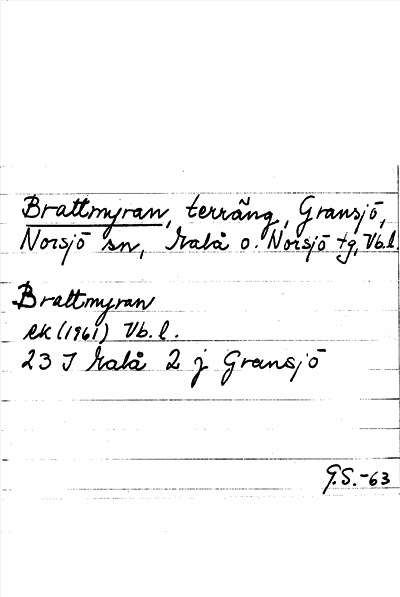 Brattmyran, terräng, Gransjö,
Norsjö sn, Malå o. Norsjö tg, Vb.l.
Brattmyran
ek (1961) Vb. l.
23 J Malå 2 j Gransjö
G.S.-63